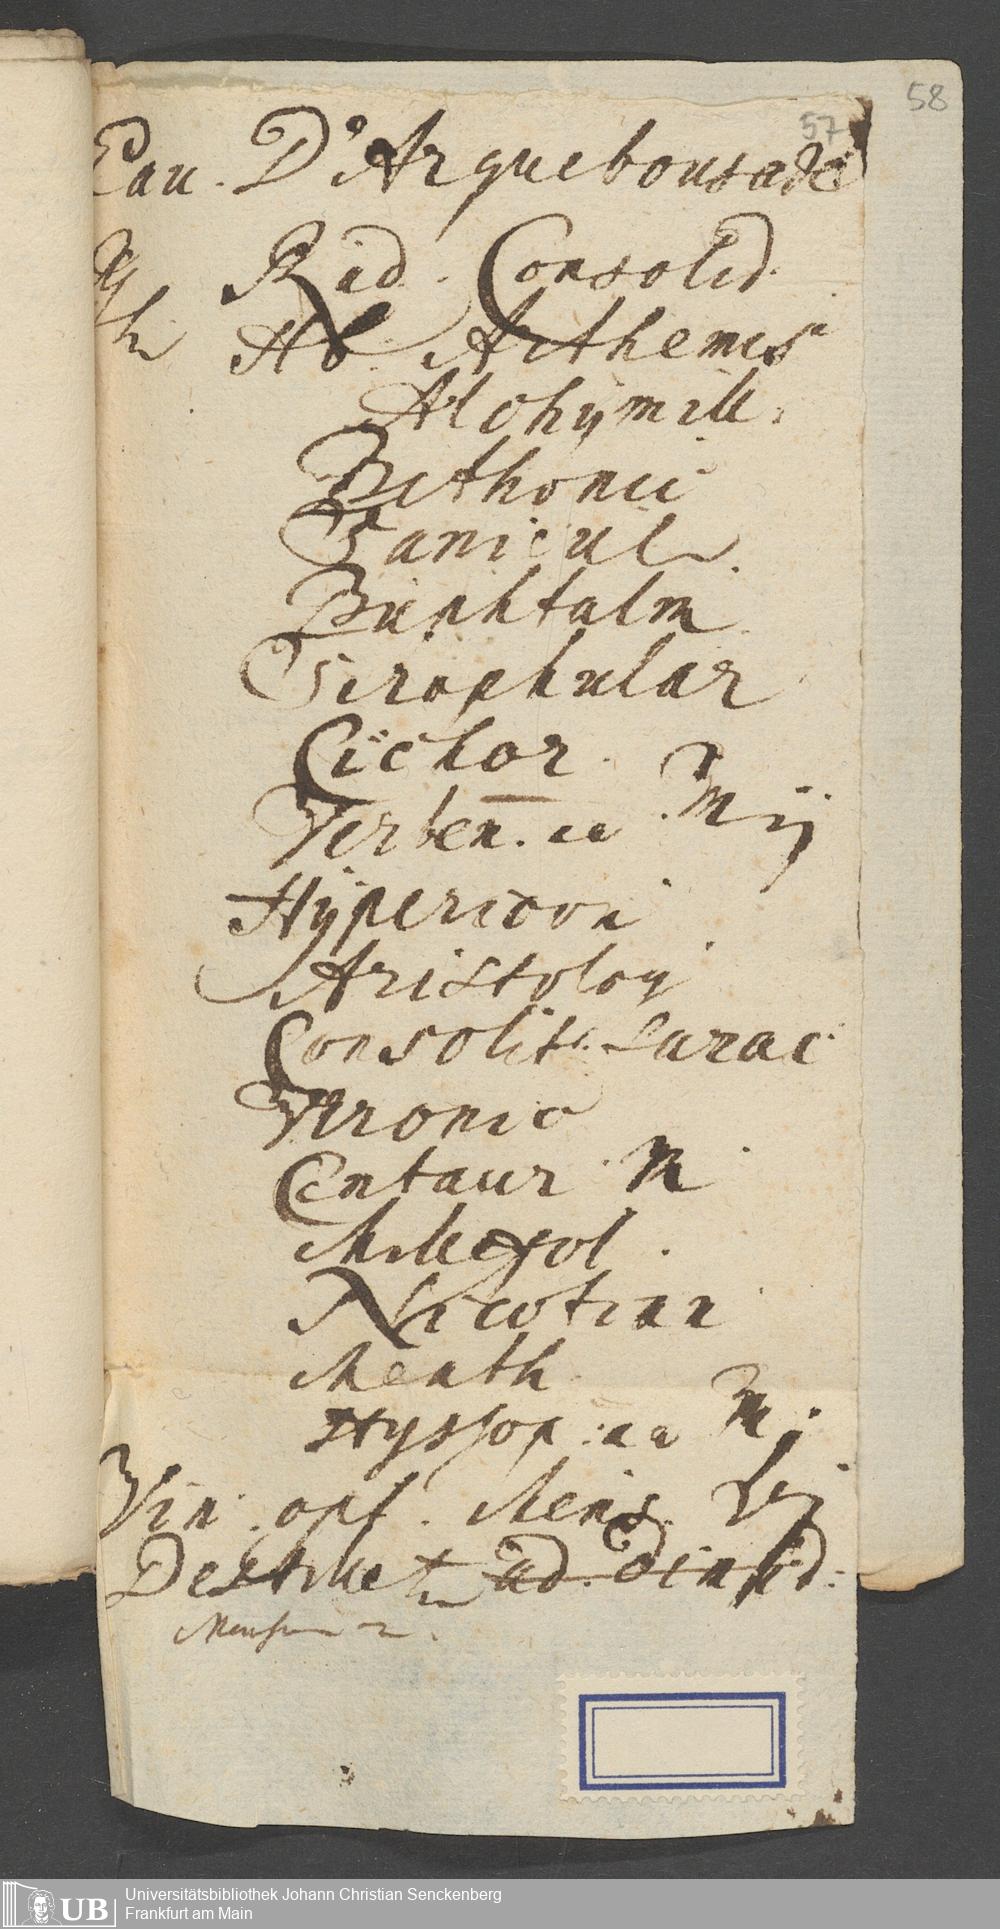 58
57
Eau. D'Arquebousade
Rad. Consolid.
Hb. Arthemis
Alchÿmill.
Bethonic
Sanicul
Buphtalm
Scrophular
Cichor.
Verben. aa M ij
Hÿpericon
Aristolog
Consolid. Sarac
Veronic
Centaur M
Millefol.
Nicotian
Menth
Hyssop. aa M j
Vin. opt. Mens.
Destillet ad dimid.
Universitätsbibliothek Johann Christian Senckenberg
UB Frankfurt am Main